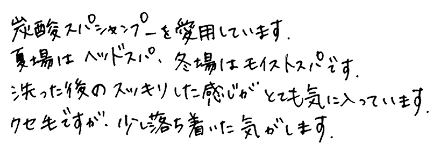 炭酸スパシャンプーを愛用しています.
夏場はヘッドスパ、冬場はモイストスパです.
洗った後のスッキリした感じがとても気に入っています.
クセ毛ですが、少し落ち着いた気がします.